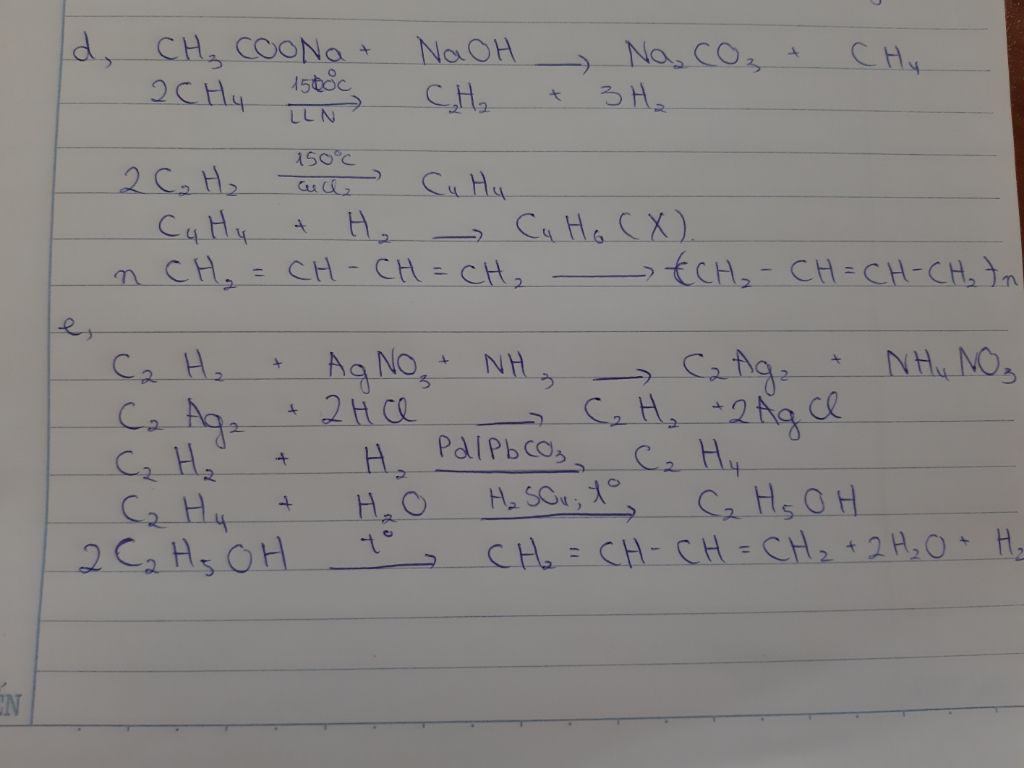 d, CH₃COONa + NaOH → Na₂CO₃ + CH₄
2CH₄ 1500°C LLN → C₂H₂ + 3H₂
2C₂H₂ 150°C CuCl₂ → C₄H₄
C₄H₄ + H₂ → C₄H₆ (X).
n CH₂ = CH - CH = CH₂ → (CH₂ - CH = CH - CH₂)n
e,
C₂H₂ + AgNO₃ + NH₃ → C₂Ag₂ + NH₄NO₃
C₂Ag₂ + 2HCl → C₂H₂ + 2AgCl
C₂H₂ + H₂ Pd/PbCO₃ → C₂H₄
C₂H₄ + H₂O H₂SO₄, t° → C₂H₅OH
2C₂H₅OH t° → CH₂ = CH - CH = CH₂ + 2H₂O + H₂
ÉN